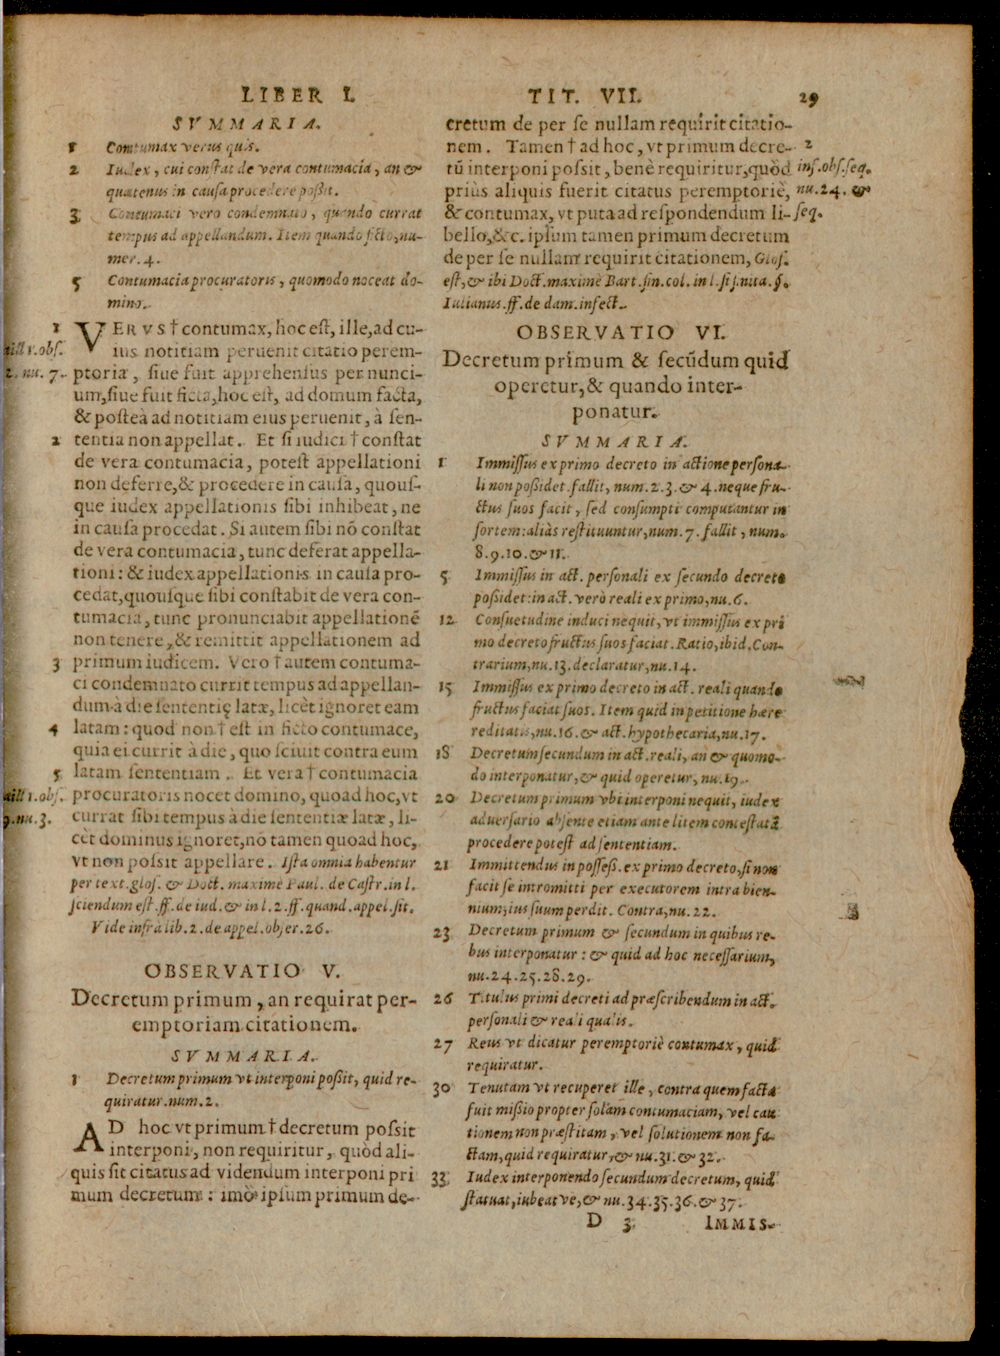 LIBER I. TIT. VII. 29
SVMMARIA.
1 Contumax verus quis.
2 Iudex, cui constat de vera contumacia, an &
quatenus in causa procedere poßit.
3 Contumaci vero condemnato, quando currat
tempus ad appellandum. Item quando ficto, nu-
mer. 4.
5 Contumacia procuratoris, quomodo noceat do-
mino.
1 VERVS † contumax, hoc est, ille, ad cu-
ius notitiam peruenit citatio perem-
1.obs.
2. nu. 7. ptoria, siue fuit apprehensus per nunci-
um, siue fuit ficta, hoc est, ad domum facta,
& posteà ad notitiam eius peruenit, à sen-
2 tentia non appellat. Et si iudici † constat
de vera contumacia, potest appellationi
non deferre, & procedere in causa, quous-
que iudex appellationis sibi inhibeat, ne
in causa procedat. Si autem sibi nō constat
de vera contumacia, tunc deferat appella-
tioni: & iudex appellationis in causa pro-
cedat, quousque sibi constabit de vera con-
tumacia, tunc pronunciabit appellationē
non tenere, & remittit appellationem ad
3 primum iudicem. Vero † autem contuma-
ci condemnato currit tempus ad appellan-
dum à die sententię latæ, licèt ignoret eam
4 latam: quod non † est in ficto contumace,
quia ei currit à die, quo sciuit contra eum
5 latam sententiam. Et vera † contumacia
1.obs. procuratoris nocet domino, quoad hoc, vt
9.nu.3. currat sibi tempus à die sententiæ latæ, li-
cèt dominus ignoret, nō tamen quoad hoc,
vt non possit appellare. Ista omnia habentur
per text. glos. & Doct. maximè Paul. de Castr. in l.
sciendum est. ff. de iud. & in l. 2. ff. quand. appel. sit.
Vide infra lib. 2. de appel. obser. 26.
OBSERVATIO V.
Decretum primum, an requirat per-
emptoriam citationem.
SVMMARIA.
1 Decretum primum vt interponi poßit, quid re-
quiratur. num. 2.
AD hoc vt primum † decretum possit
interponi, non requiritur, quòd ali-
quis sit citatus ad videndum interponi pri
mum decretum: imò ipsum primum de-
cretum de per se nullam requirit citatio-
nem. Tamen † ad hoc, vt primum decre- 2
tū interponi possit, benè requiritur, quòd inf. obs. seq.
priùs aliquis fuerit citatus peremptoriè, nu. 24. &
& contumax, vt puta ad respondendum li- seq.
bello, &c. ipsum tamen primum decretum
de per se nullam requirit citationem, Glos.
est, & ibi Doct. maximè Bart. fin. col. in l. si finita. §.
Iulianus. ff. de dam. infect.
OBSERVATIO VI.
Decretum primum & secūdum quid
operetur, & quando inter-
ponatur.
SVMMARIA.
1 Immissus ex primo decreto in actione persona-
li non poßidet. fallit, num. 2. 3. & 4. neque fru-
ctus suos facit, sed consumpti computantur in
sortem: aliàs restituuntur, num. 7. fallit, num.
8. 9. 10. & 11.
5 Immissus in act. personali ex secundo decreto
poßidet: in act. verò reali ex primo, nu. 6.
12 Consuetudine induci nequit, vt immissus ex pri
mo decreto fructus suos faciat. Ratio, ibid. Con-
trarium, nu. 13. declaratur, nu. 14.
15 Immissus ex primo decreto in act. reali quando
fructus faciat suos. Item quid in petitione hære
reditatis, nu. 16. & act. hypothecaria, nu. 17.
18 Decretum secundum in act. reali, an & quomo-
do interponatur, & quid operetur, nu. 19.
20 Decretum primum vbi interponi nequit, iudex
aduersario absente etiam ante litem contestatā
procedere potest ad sententiam.
21 Immittendus in possess. ex primo decreto, si non
facit se intromitti per executorem intra bien-
nium, ius suum perdit. Contra, nu. 22.
23 Decretum primum & secundum in quibus re-
bus interponatur: & quid ad hoc necessarium,
nu. 24. 25. 28. 29.
26 Titulus primi decreti ad præscribendum in act.
personali & reali qualis.
27 Reus vt dicatur peremptoriè contumax, quid
requiratur.
30 Tenutam vt recuperet ille, contra quem facta
fuit missio propter solam contumaciam, vel cau
tionem non præstitam, vel solutionem non fa-
ctam, quid requiratur, & nu. 31. & 32.
33 Iudex interponendo secundum decretum, quid
statuat, iubeatve, & nu. 34. 35. 36. & 37.
D 3 IMMIS-